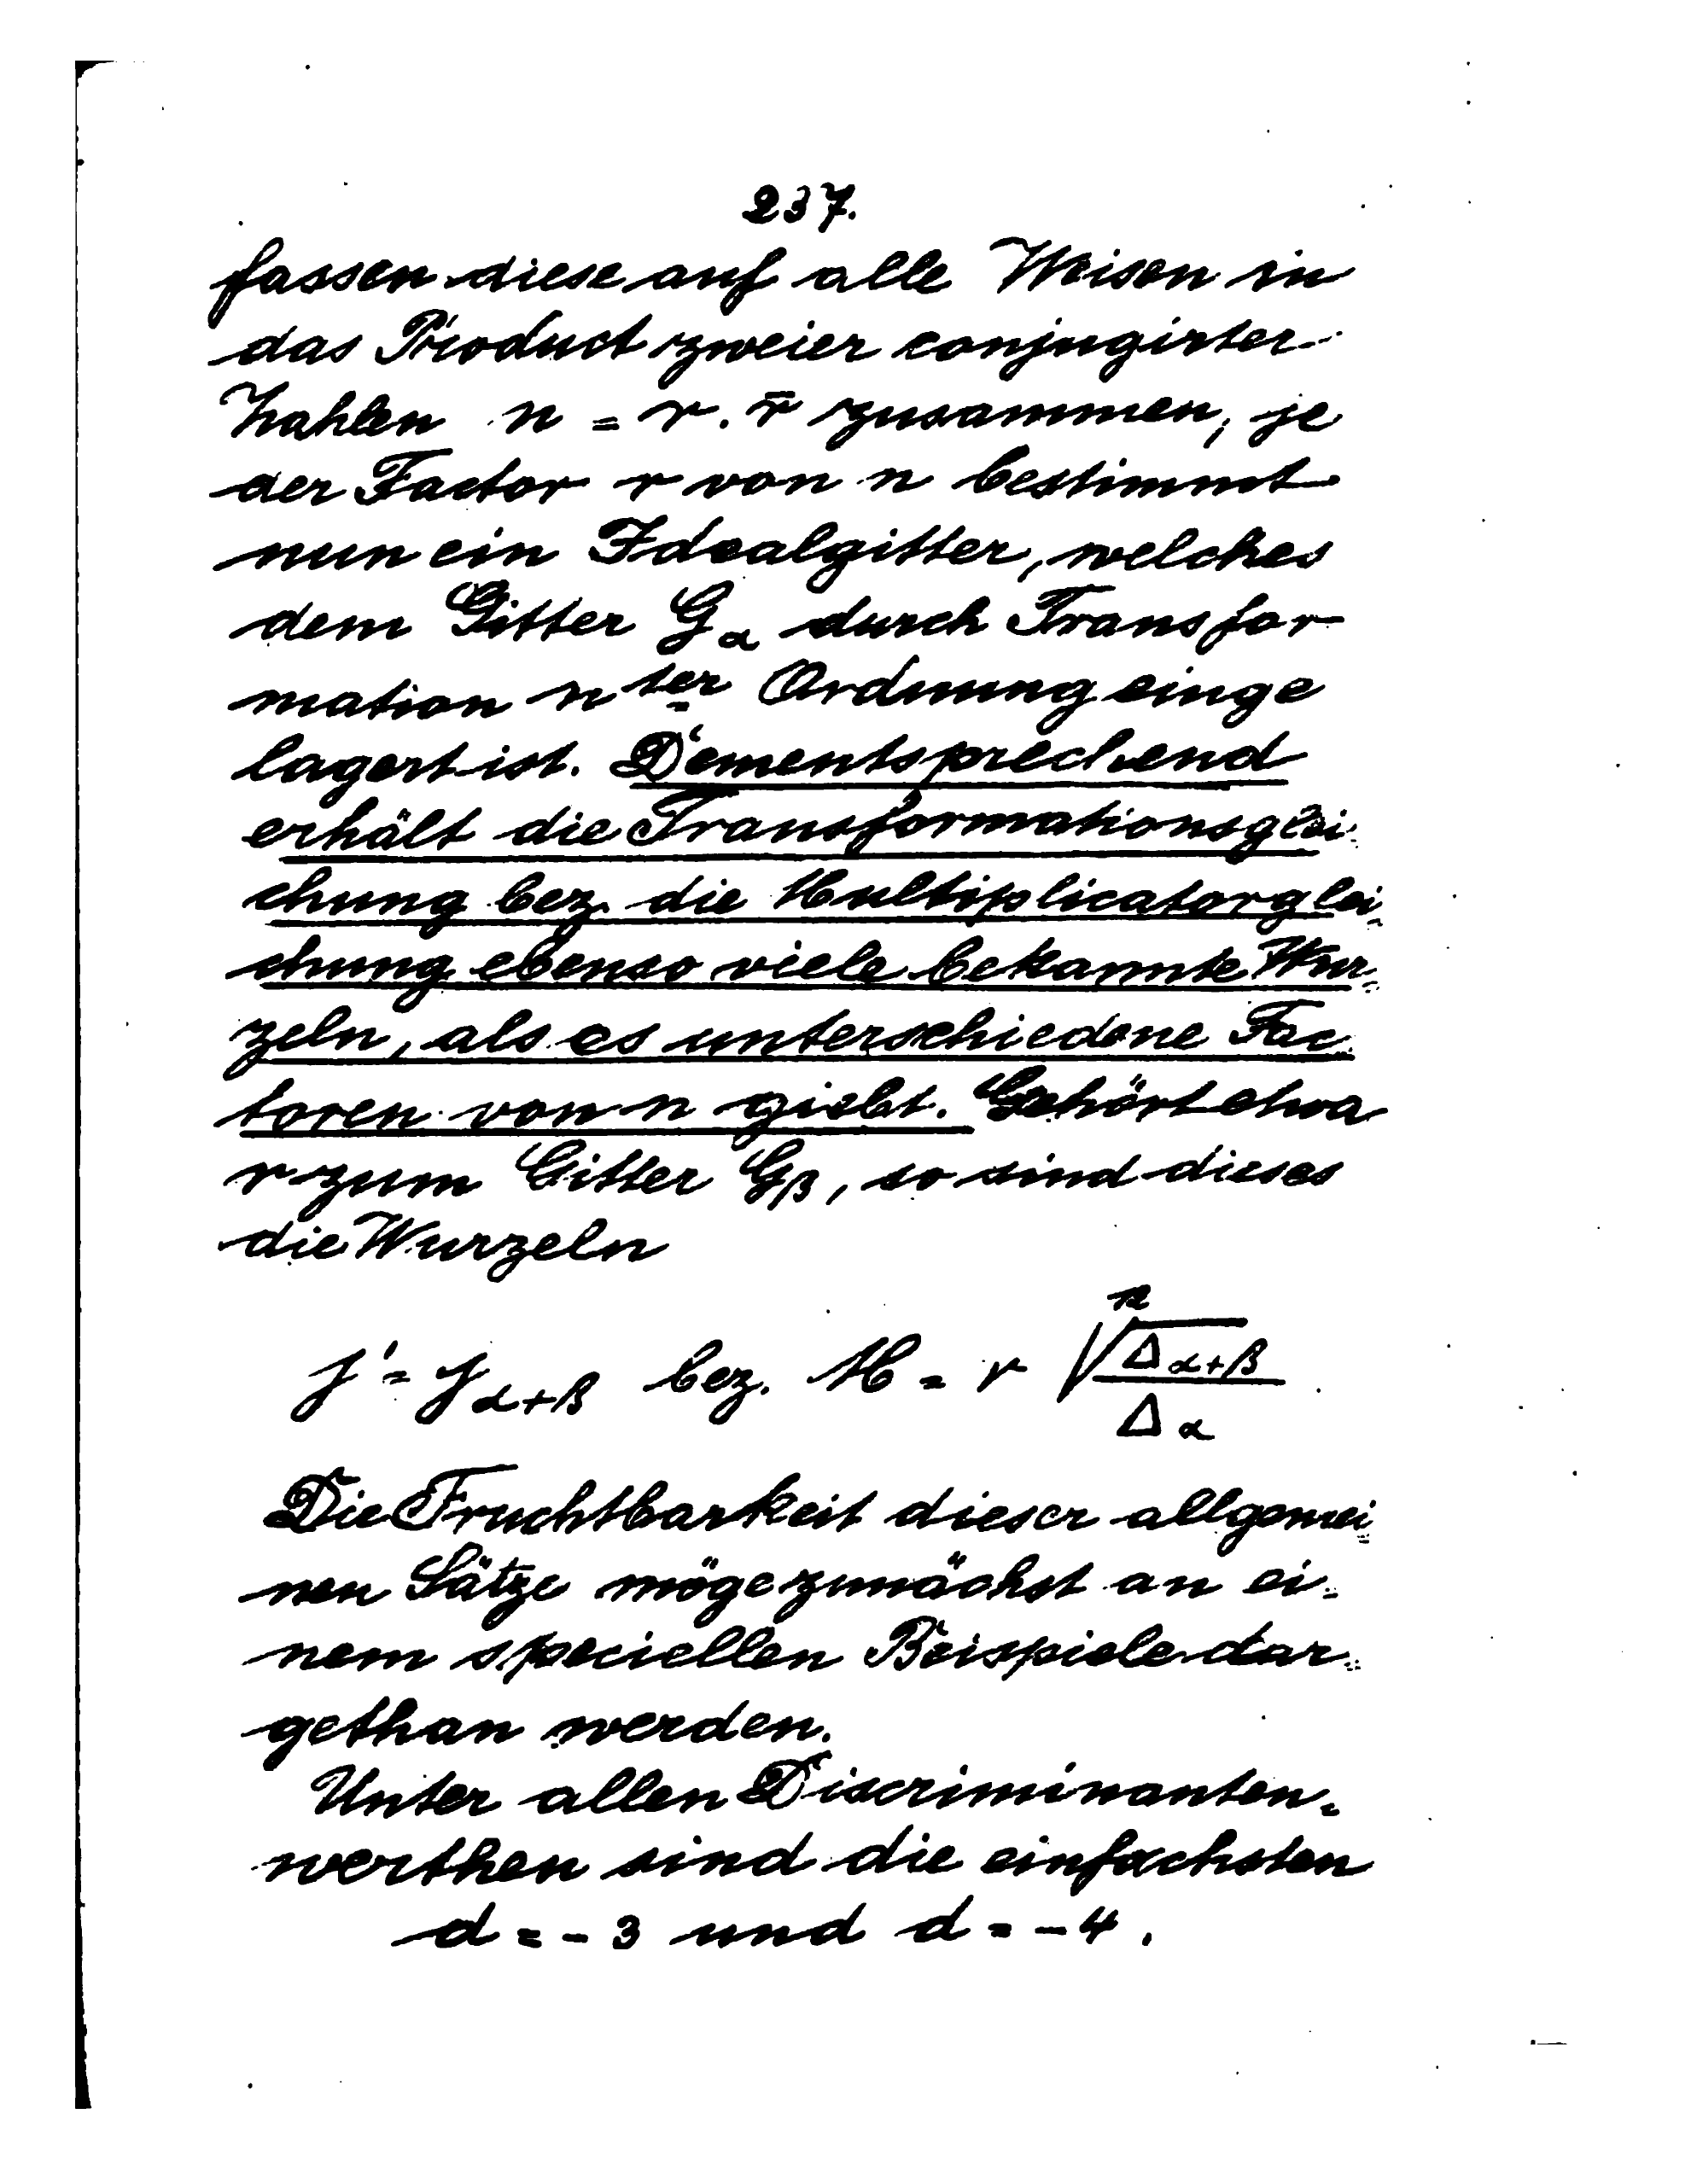 237.
fassen diese auf alle Weisen in
das Product zweier conjugirter
Zahlen n = r . r̄ zusammen; je
der Factor r von n bestimmt
nun ein Idealgitter, welches
dem Gitter G_α durch Transfor-
mation n^ter Ordnung einge
lagert ist. Dementsprechend
erhält die Transformationsglei-
chung bez. die Multiplicatorglei-
chung ebenso viele bekannte Wur-
zeln, als es unterschiedene Fac-
toren von n giebt. Gehört etwa
r zum Gitter G_β, so sind dieses
die Wurzeln
j' = j_{α+β} bez. M = r \sqrt[12]{\frac{Δ_{α+β}}{Δ_α}}
Die Fruchtbarkeit dieser allgemei-
nen Sätze möge zunächst an ei-
nem speciellen Beispiele dar-
gethan werden.
Unter allen Discriminanten-
werthen sind die einfachsten
d = -3 und d = -4.